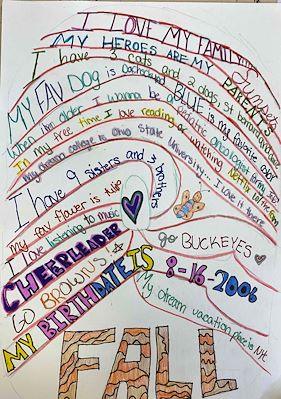 I LOVE MY FAMILY!!!
MY HEROES ARE MY PARENTS
I have 3 cats and 2 dogs, st. bernard and
MY FAV DOG is Dachshund BLUE is my favorite color
When I'm older I wanna be a pediatric oncologist
In my free time I love reading or watching Netflix with
My dream college is Ohio State University... I love it there
I have 9 sisters and 3 brothers
my fav flower is tulip
I love listening to music
CHEERLEADER
GO BROWNS
MY BIRTHDATE IS 8-16-2006
go BUCKEYES
My dream vacation place is NH.
FALL